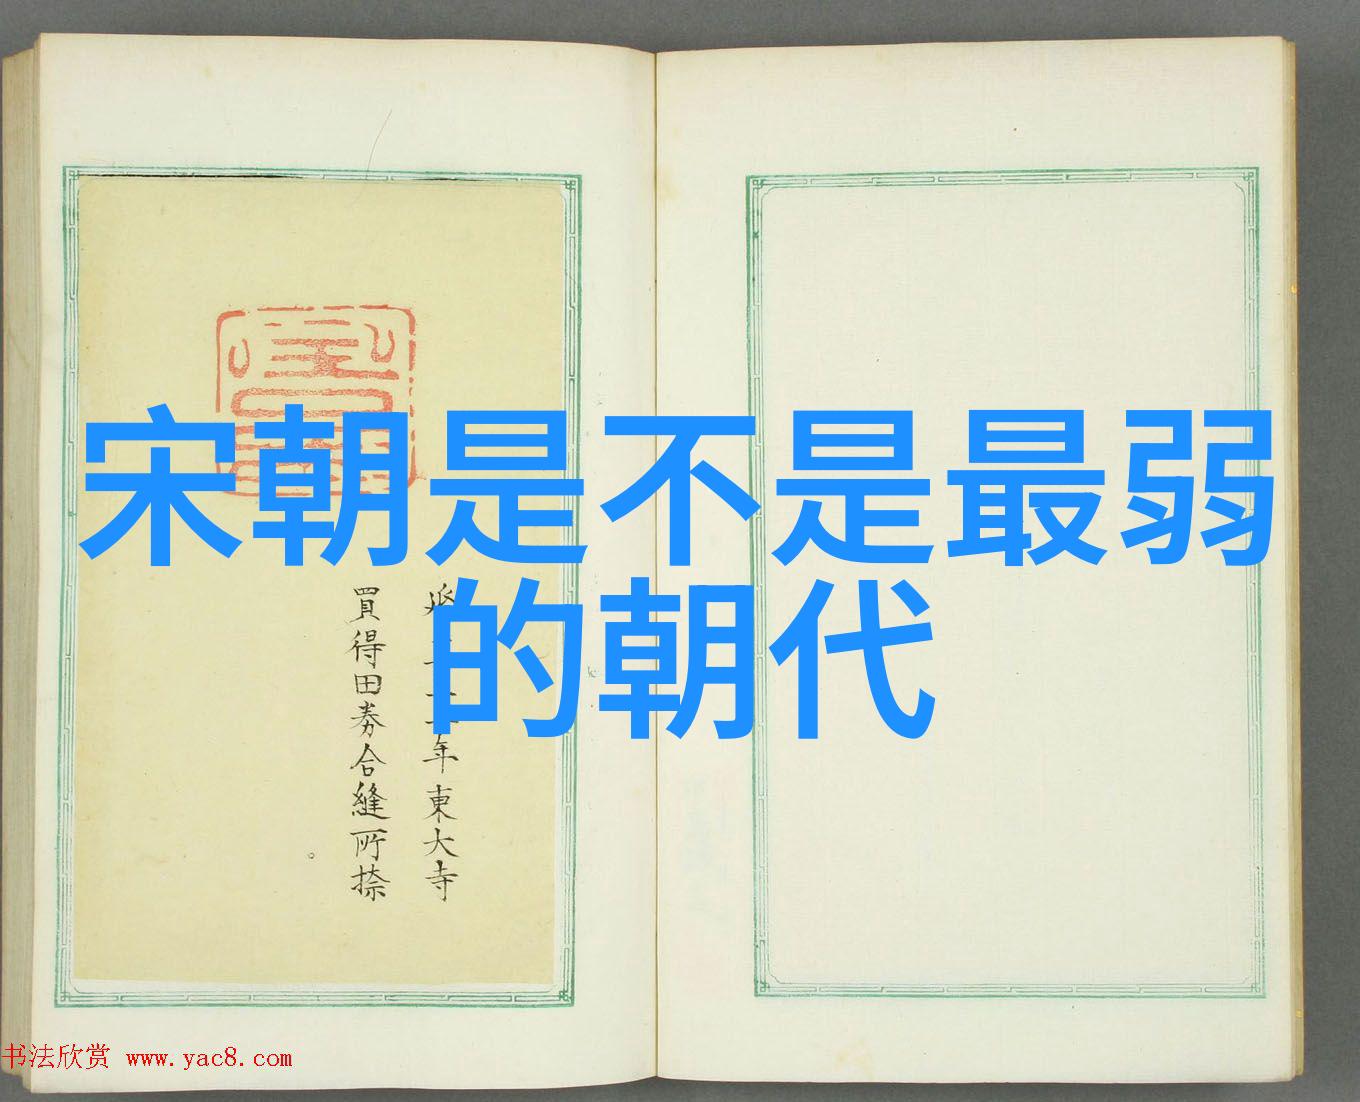 宋朝是不是最弱
的朝代
年東大寺
買得田券合縫所捺
书法欣赏 www.yac8.com